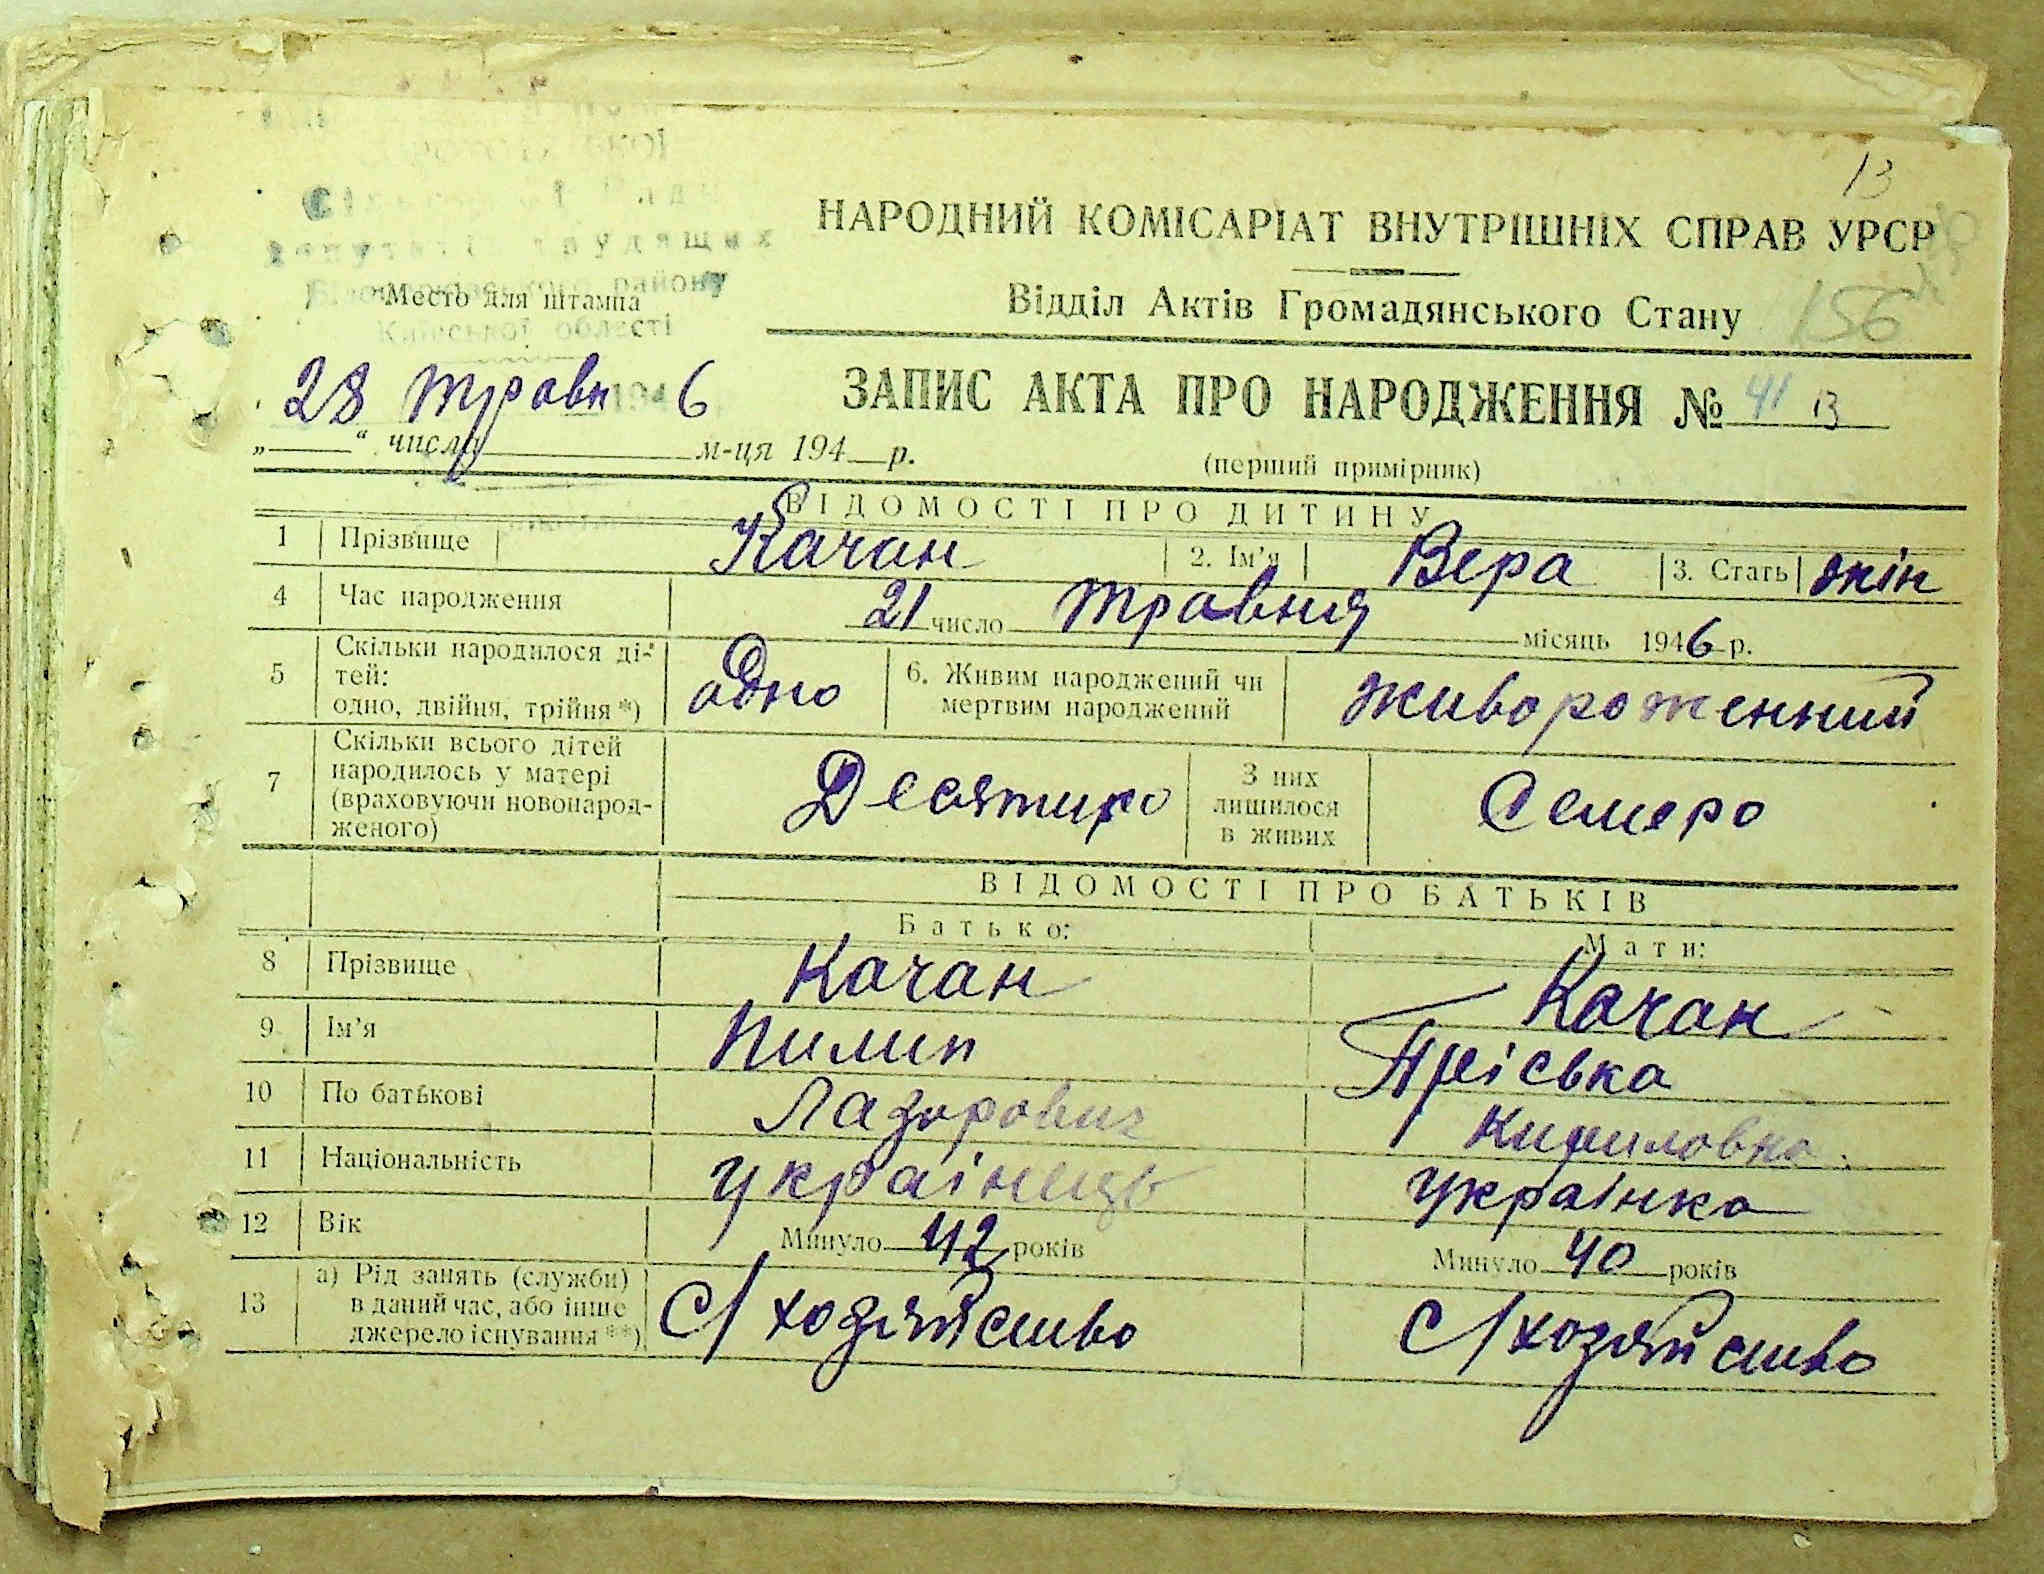 13
НАРОДНИЙ КОМІСАРІАТ ВНУТРІШНІХ СПРАВ УРСР
району
Место для штампа
Київської області
Відділ Актів Громадянського Стану
156
28 травн 1946
ЗАПИС АКТА ПРО НАРОДЖЕННЯ № 41 13
„ “ числа м-ця 194 р.
(перший примірник)
ВІДОМОСТІ ПРО ДИТИНУ
1 Прізвище Качан 2. Ім’я Вера 3. Стать жін
4 Час народження 21 число травня місяць 1946 р.
5 Скільки народилося ді-
тей:
одно, двійня, трійня*) одно 6. Живим народжений чи
мертвим народжений живороженний
7 Скільки всього дітей
народилось у матері
(враховуючи новонарод-
женого) Десятиро З них
лишилося
в живих Семеро
ВІДОМОСТІ ПРО БАТЬКІВ
Батько: Мати:
8 Прізвище Качан Качан
9 Ім’я Пилип Пріська
10 По батькові Лазорович Кириловна
11 Національність українець українка
12 Вік Минуло 42 років Минуло 40 років
13 а) Рід занять (служби)
в даний час, або інше
джерело існування**) С/хозяйство С/хозяйство